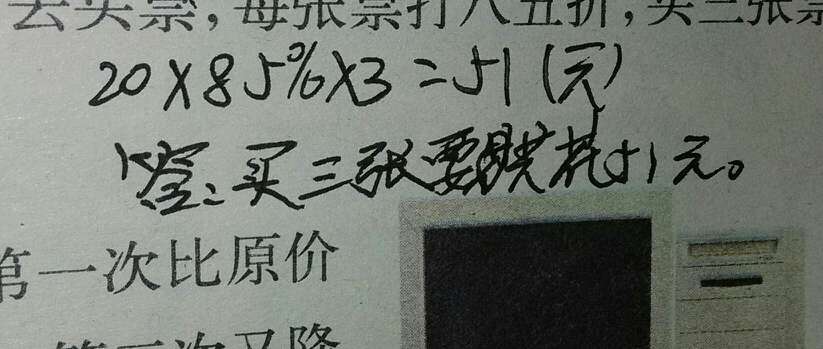 去买票，每张票打八五折，买三张票
20×85%×3=51(元)
答：买三张要花51元。
第一次比原价
第二次又降